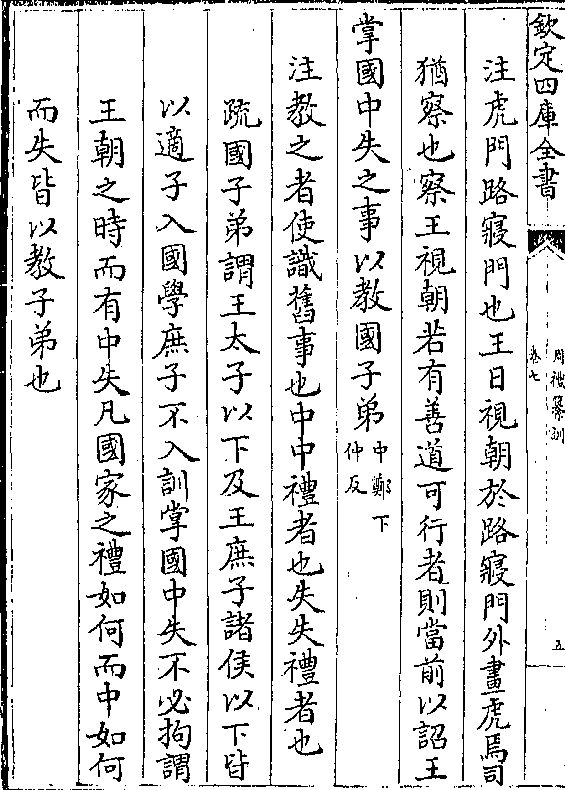 欽定四庫全書
周禮纂訓
卷七
五
注虎門路寢門也王日視朝於路寢門外畫虎焉司
猶察也察王視朝若有善道可行者則當前以詔王
掌國中失之事以教國子弟
中鄭下
仲反
注教之者使識舊事也中中禮者也失失禮者也
疏國子弟謂王太子以下及王庶子諸侯以下皆
以適子入國學庶子不入訓掌國中失不必拘謂
王朝之時而有中失凡國家之禮如何而中如何
而失皆以教子弟也